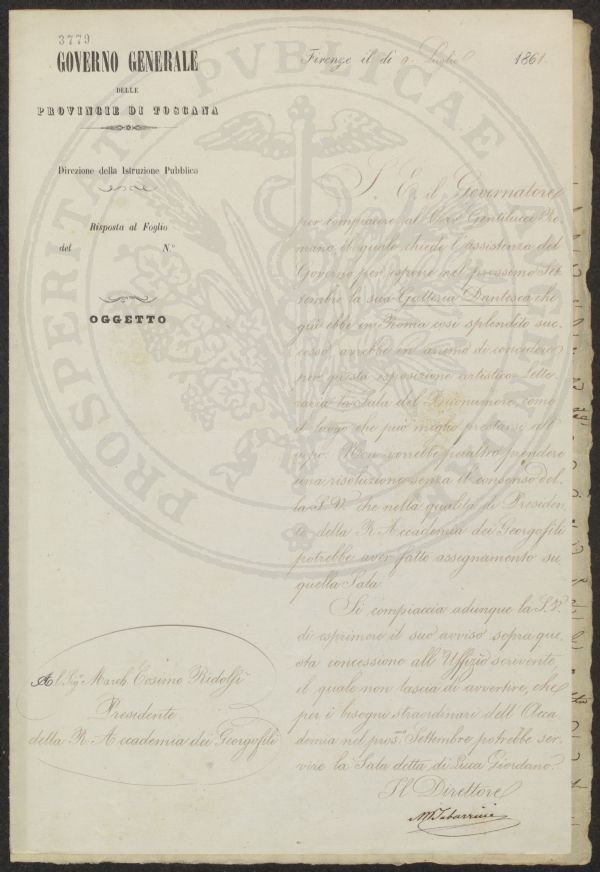 3779
GOVERNO GENERALE
DELLE
PROVINCIE DI TOSCANA
Direzione della Istruzione Pubblica
Risposta al Foglio
del N.°
OGGETTO
Firenze il dì 9 Luglio 1861.
S. E. il Governatore
per compiacere al Cav. Gentilucci Ro-
mano il quale chiede l'assistenza del
Governo per esporre nel prossimo Set-
tembre la sua Galleria Dantesca che
già ebbe in Roma così splendito suc-
cesso avrebbe in animo di concedere
per questa esposizione artistico Lette-
raria la Sala del Buonumore, come
il luogo che può meglio prestarsi all'
uopo. Non vorrebbe peraltro prendere
una risoluzione senza il consenso del-
la S. V. che nella qualità di Presiden-
te della R. Accademia dei Georgofili
potrebbe aver fatto assegnamento su
quella Sala.
Si compiaccia adunque la S. V.
di esprimere il suo avviso sopra que-
sta concessione all'Uffizio scrivente,
il quale non lascia di avvertire, che
per i bisogni straordinari dell'Acca-
demia nel pross.° Settembre potrebbe ser-
vire la Sala detta di Luca Giordano.
Il Direttore
M Tabarrini
Al Sig. March. Cosimo Ridolfi
Presidente
della R. Accademia dei Georgofili
PROSPERITATI PVBLICAE